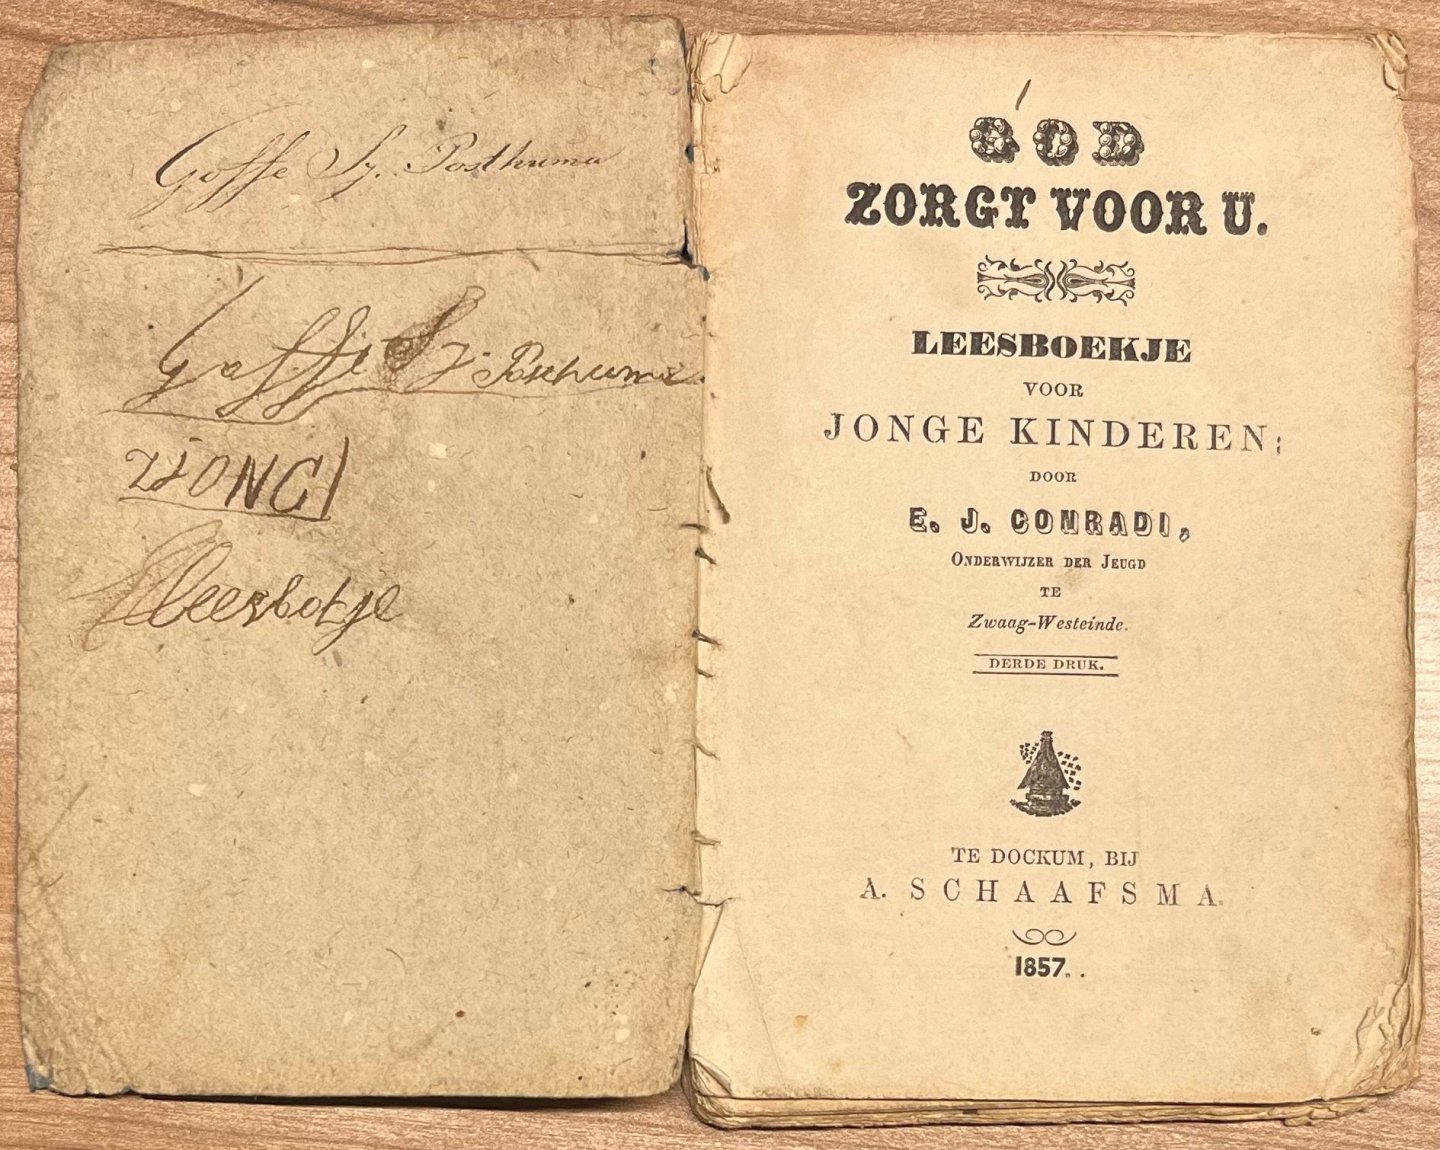 Goffe Sj. Posthuma
Goffe Sj. Posthuma
ZIJONG
Leesbokje
GOD
ZORGT VOOR U.
LEESBOEKJE
VOOR
JONGE KINDEREN;
DOOR
E. J. CONRADI,
ONDERWIJZER DER JEUGD
TE
Zwaag-Westeinde.
DERDE DRUK.
TE DOCKUM, BIJ
A. SCHAAFSMA.
1857.